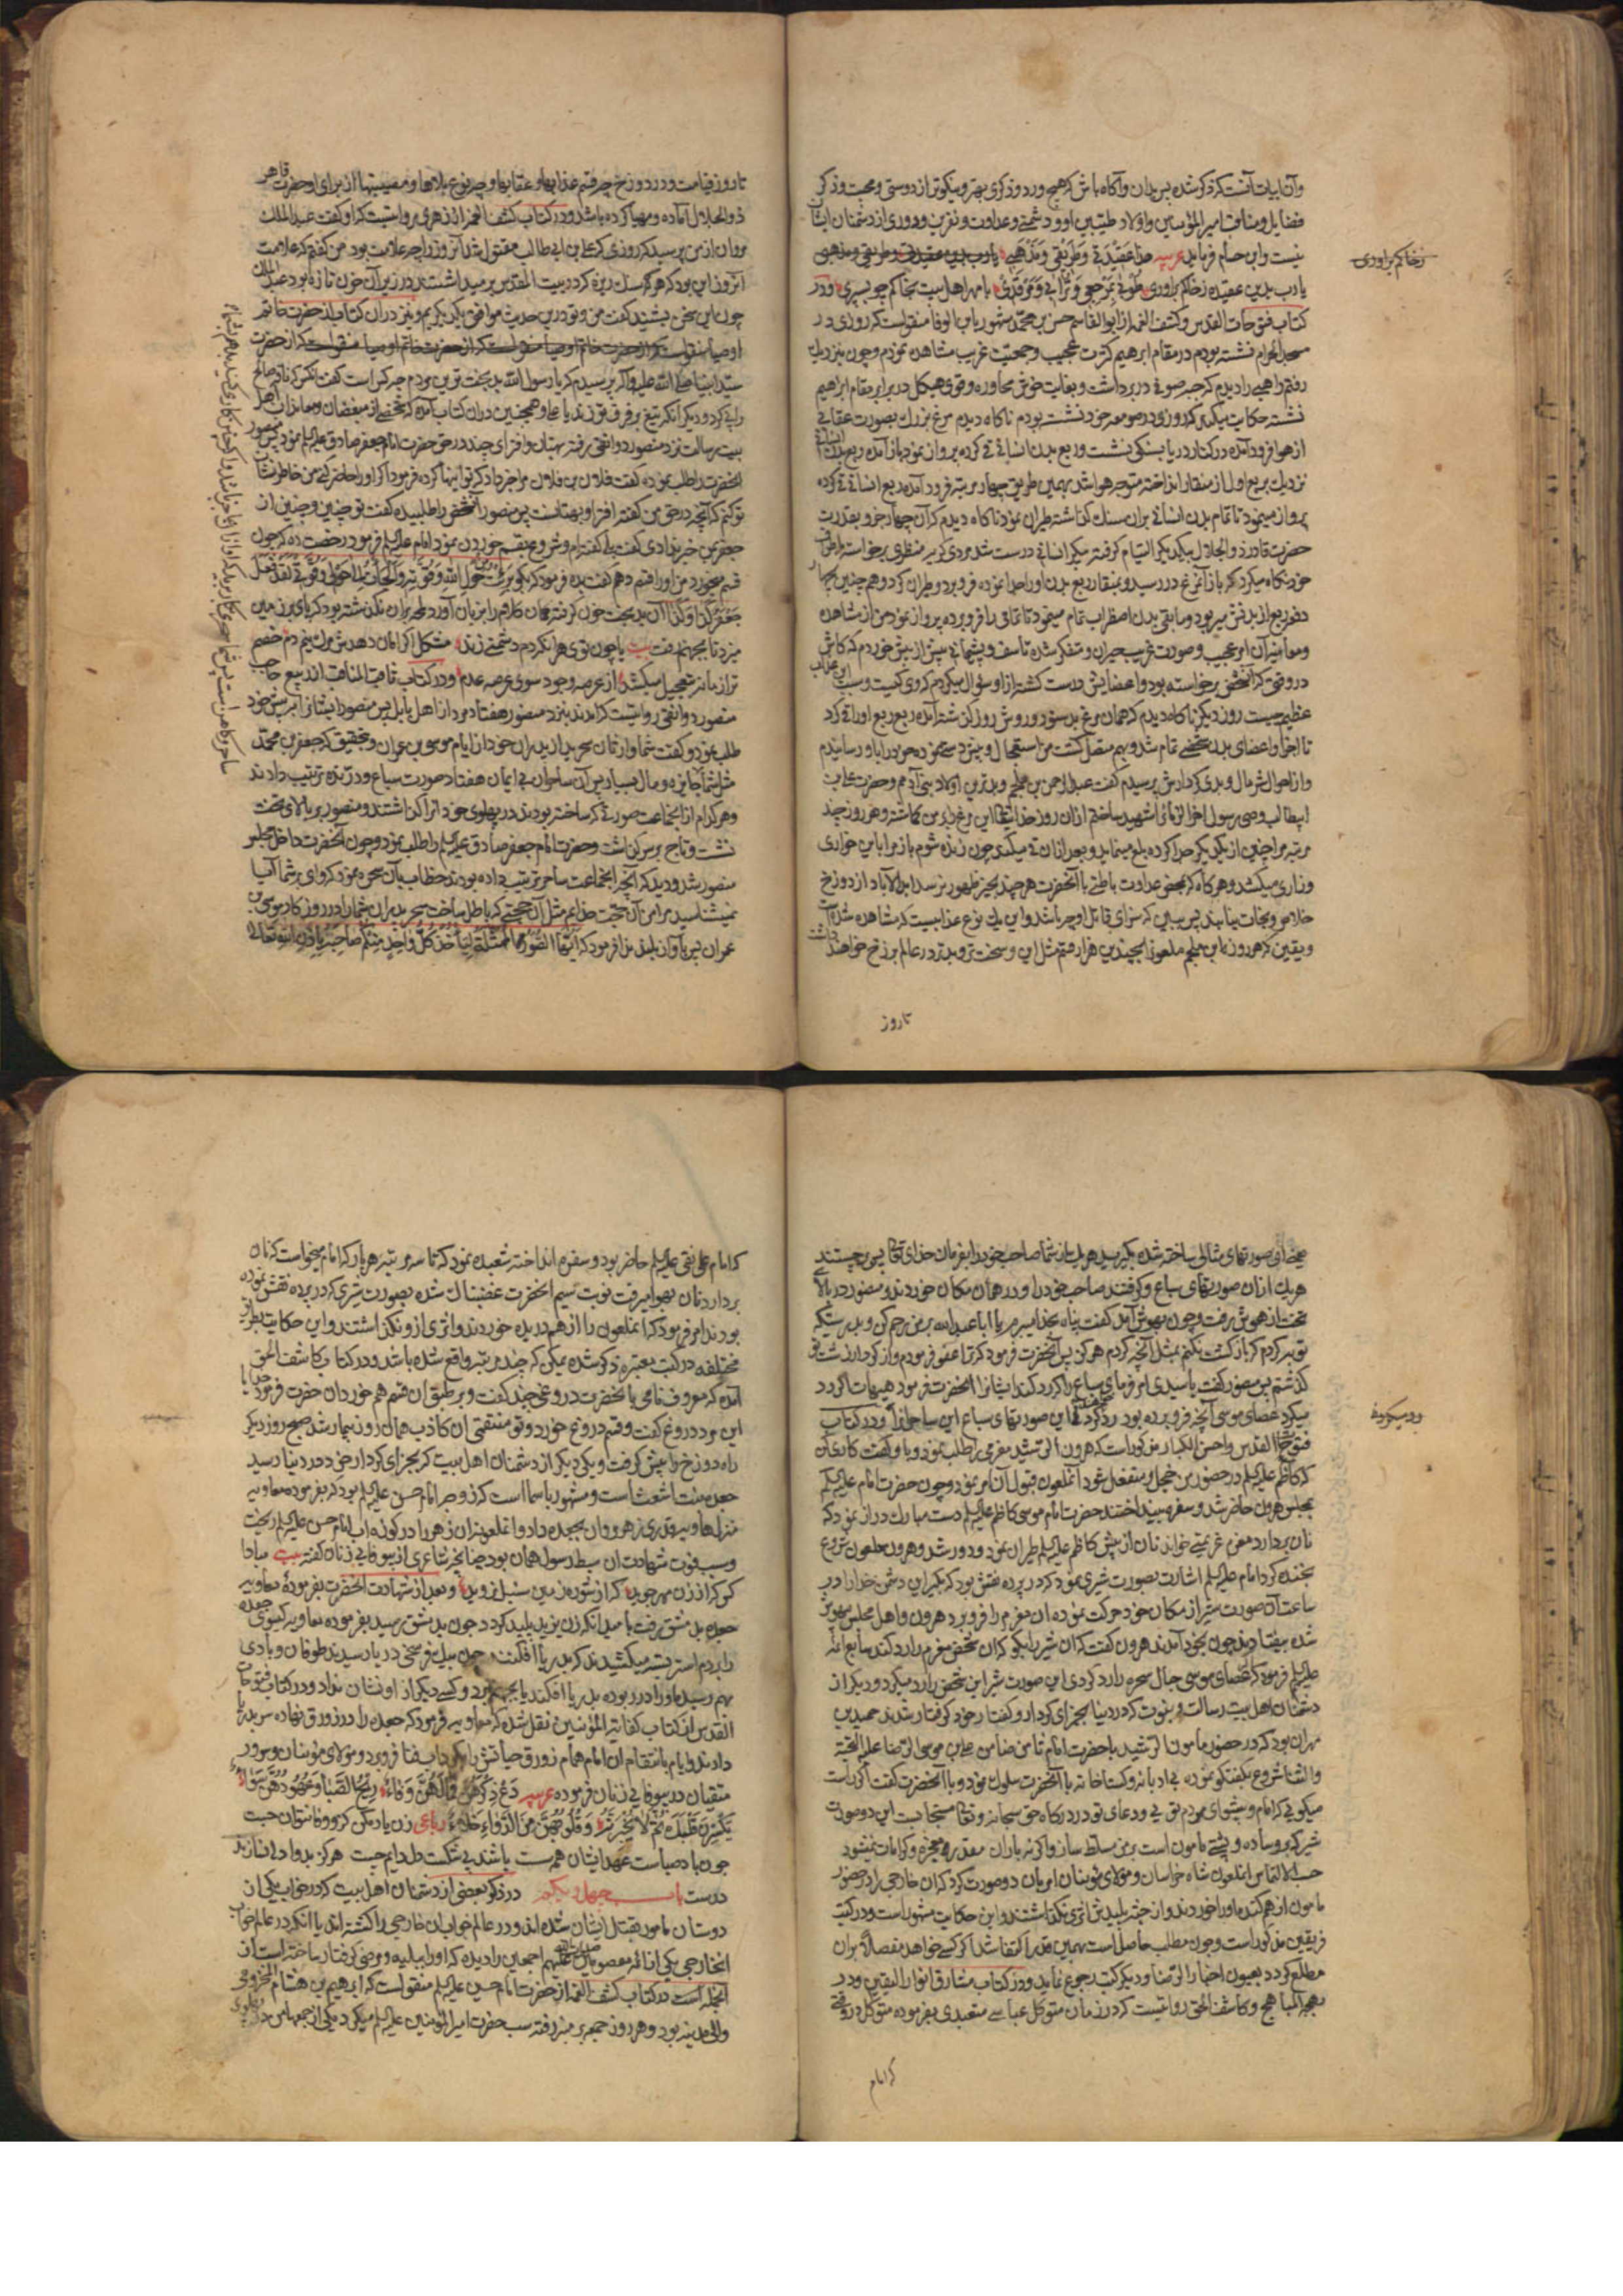 وآن ابیات آنست که ذکر شده پس بدان وآکاه باش که هیچ ورد وذکری بهتر ونیکوتر از دوستی ومحبت وذکر
فضایل ومناقب امیرالمؤمنین واولاد طیبین او ودشمنی وعداوت ونفرین ودوری از دشمنان ایشان
نیست وابن حسام فرماید عربیه هذا عقیدتی وطریقتی ومذهبی
یارب بدین عقیده زخاکم براوری طوبی بمرجعی ومآبی ومرقدی بامهر اهل بیت بخاکم چو بسپری ودر
کتاب فتوحات القدس وکشف الغمه از ابوالقاسم حسن بن محمد مشهور بابن الوفا منقولست که روزی در
مسجد الحرام نشسته بودم در مقام ابرهیم کثرت عجیب وجمعیت غریب مشاهده نمودم وچون بنزدیک
رفتم راهبی را دیدم که جبه صوفی دربرداشت وبغایت خوش محاوره وقوی هیکل در برابر مقام ابراهیم
نشسته حکایت میکند که روزی در صومعه خود نشسته بودم ناکاه دیدم مرغ بزرک بصورت عقابی
از هوا فرود آمده در کنار دریا بسنکی نشست وربع بدن انسانی قی کرده پرواز نمود باز آمده ربع بدن انسانی
نزدیک بربع اول از منقار انداخته متوجه هوا شد بهمین طریق چهار مرتبه فرود آمده ربع انسانی قی کرده
پرواز مینمود تا تمام بدن انسانی بران سنک کذاشته طیران نمود ناکاه دیدم که آن چهار جزو بقدرت
حضرت قادر ذوالجلال بیکدیکر التیام کرفته پیکر انسانی درست شد مردی کریه منظری برخاسته
خود نکاه میکرد که باز آنمرغ در رسید وبمنقار ربع بدن اورا جدا نموده فرو برد وطیران کرد وهم چنین
ومعاینه آن امر عجیب وصورت غریب حیران ومتفکر شده تاسف وپشیمانی بیش از بیش خوردم که کاش
در وقتی که آنشخص برخاسته بود واعضایش درست کشته از او سوال میکردم که وی کیست وسبب این عذاب
عظیم چیست روز دیکر ناکاه دیدم که همان مرغ بدستور وروش روز کذشته آمده ربع ربع اورا قی کرد
تا اجزا واعضای بدن شخصی تمام شد وبهم متصل کشت من استعجال
واز احوال شر مال وبدی کردارش پرسیدم کفت عبدالرحمن بن ملجم وبدترین اولاد بنی آدمم وحضرت علی بن
ابیطالب وصی رسول آخر الزمان را شهید ساختم از آن روز خدایتعالی این مرغ را بر من کماشته وهر روز چند
مرتبه مرا چنین از یکدیکر جدا کرده بلع مینماید وبعد از ان قی میکند چون زنده شوم باز مرا باین خواری
وزاری میکشد وهرکاه که بمحض عداوت باطنی با آنحضرت هرچند بحیز ظهور نرسد ابدالاباد از دوزخ
خلاص ونجات نیابد پس ببین که سزای قاتل او چه باشد واین یک نوع عذابیست که مشاهده شده است
ویقین که هر روز بابن ملجم ملعون بچندین هزار قسم مثل این وسخت تر وبدتر در عالم برزخ خواهند داشت
تاروز
زخاکم براوری
تا روز قیامت ودر دوزخ چه قسم عذابها وعقابها وچه نوع بلاها ومصیبتها از برای او حضرت قاهر
ذوالجلال آماده ومهیا کرده باشد ودر کتاب کشف الغمه از زهری روایتست که او کفت عبدالملک
مروان از من پرسید که روزی که علی بن ابی طالب مقتول شد آنروز را چه علامت بود من کفتم که علامت
آنروز این بود که هرکه سنک ریزه که در بیت المقدس برمیداشتند در زیر آن خون تازه بود عبدالملک
چون این سخن بشنید کفت من وتو درین حدیث موافق یکدیکریم ونیز در آن کتاب از حضرت خاتم
اوصیا منقولست که از حضرت خاتم اوصیا منقولست که از حضرت
سید انبیا صلی الله علیه وآله پرسیدم که یا رسول الله بدبخت ترین مردم چه کس است کفت انکس که ناقه صالح
را پی کرد ودیکر انکه تیغ بر فرق تو زند یا علی وهمچنین در ان کتاب آمده که شخصی از مبغضان ومعاندان اهل
بیت رسالت نزد منصور دوانقی رفته بهتان وافترای چند در حق حضرت امام جعفر صادق علیه السلم نمود پس منصور
آنحضرت را طلب نموده کفت فلان بن فلان مرا خبر داد که تو اینها کرده فرمود
تو کنم که آنچه در حق من کفته افترا وبهتانست پس منصور آنشخص را طلبیده کفت تو چنین وچنین از
جعفر بمن خبر دادی کفت بلی کفته ام وشروع بقسم خوردن نمود امام علیه السلم فرمود رخصت ده که چون
قسم میخورد من اورا قسم دهم کفت بده فرمود که بکو برئت من حول الله وقوته والتجأت الی حولی وقوتی لقد فعل
جعفر کذا وکذا آن بدبخت چون کرفته همان کلام را بزبان آورد لمحه بران نکذشته بود که پای بر زمین
میزد تا بجهنم رفت بیت باچون توی هر انکه دم دشمنی زند مشکل اکر امان دهدش مرک نیم دم خصم
ترا زمانه بتعجیل میکشد از عرصه وجود سوی عرصه عدم ودر کتاب ثاقب المناقب از ربیع حاجب
منصور دوانقی روایتست که امدند بنزد منصور هفتاد مرد از اهل بابل پس منصور ایشان را
طلب نمود وکفت شما وارثان سحرید از پدران خود از ایام موسی بن عمران وبتحقیق که جعفر بن محمد
مثل شما
وهر کدام از انجماعت صورتی که ساخته بودند در پهلوی خود آنرا کذاشتند ومنصور بر بالای تخت
نشست وتاج بر سر کذاشت وحضرت امام جعفر صادق علیه السلم را طلب نمود وچون آنحضرت داخل مجلس
منصور شد ودید که آنچه انجماعت ساحر ترتیب داده بودند خطاب بآن سحره نمود که وای بر شما آیا
نمیشناسید مرا من آن حجت خدایم مثل آن حجتی که باطل ساخت سحر پدران شما را در روزکار موسی بن
عمران پس بآواز بلند ندا فرمود که ایتها الصور الممثلة لیأخذ کل واحد منکم صاحبه باذن الله تعالی
یعنی ای صورتهای مثالی ساخته شده بکیرید هریک از شما صاحب خود را بفرمان خدای تعالی پس برجستند
هریک ازان صورتهای سباع وکرفتند صاحب خود را ودر همان مکان خوردند ومنصور در بالای
تخت از هوش رفت وچون بهوش آمد کفت پناه بخدا میبرم یا اباعبدالله بر من رحم کن وبدرستیکه
توبه کردم که باز کشت نکنم بمثل آنچه کردم هرکز پس آنحضرت فرمود که ترا عفو فرمودم واز کردار زشت تو
کذشتم پس منصور کفت یا سیدی امر فرمای سباع را که رد کنند ایشانرا آنحضرت فرمود هیهات اکر رد
میکرد عصای موسی آنچه فرو برده بود رد کردندی این صورتهای سباع این ساحرانرا ودر کتاب
فتوح القدس واحسن الکبار مذکور است که هرون الرشید معزمی را طلب نمود وباو کفت کاری کن
که کاظم علیه السلم در حضور من خجل ومنفعل شود آنملعون قبول آن امر نمود وچون حضرت امام علیه السلم
بمجلس هرون حاضر شد وسفره بینداختند حضرت امام موسی کاظم علیه السلم دست مبارک دراز نمود که
نان بردارد معزم عزیمتی خواند نان از پیش کاظم علیه السلم طیران نمود ودور شد وهرون ملعون شروع
بخنده کرد امام علیه السلم اشارت بصورت شیری نمود که در پرده نقش بود که بکیر این دشمن خدا را در
ساعت آن صورت شیر از مکان خود حرکت نموده ان معزم را فرو برد هرون واهل مجلس
شده بیفتادند چون بخود آمدند هرون کفت که ان شیر را بکو که ان شخص معزم را رد کند
علیه السلم فرمود که عصای موسی حبال سحره را رد کردی این صورت شیر این شخص را رد میکرد ودیکر از
دشمنان اهل بیت رسالت ونبوت که در دنیا بجزای کردار وکفتار خود کرفتار شدند حمید بن
مهران بود که در حضور مامون الرشید با حضرت امام ثامن ضامن علی بن موسی الرضا علیه التحیة
والثنا شروع بکفتکو نموده بی ادبانه وکستاخانه با آنحضرت سلوک نمود وبا آنحضرت کفت اکر راست
میکویی که امام وپیشوای مردم توئی ودعای تو در درکاه حق سبحانه وتعالی مستجابست این دو صورت
شیر که بر وساده وپشتی مامون است بر من مسلط ساز واکر نه
حسب الالتماس انملعون شاه خراسان ومولای مؤمنان امر بان دو صورت کرد که ان خارجی را در حضور
مامون از هم کنده اورا خوردند واز جثه پلیدش اثری نکذاشتند واین حکایت مشهور است ودر کتب
فریقین مذکور است وچون مطلب حاصل است بهمین قدر اکتفا شد اکر کسی خواهد مفصلا بران
مطلع کردد بعیون اخبار الرضا ودیکر کتب رجوع نماید ودر کتاب مشارق انوار الیقین ودر
بهجة المباهج وکاشف الحق روایتست که در زمان متوکل عباسی مشعبدی بفرموده متوکل در وقتی
که امام
که امام علی نقی علیه السلم حاضر بود وسفره انداخته شعبده نمود که تا سه مرتبه هر بار که امام میخواست که نان
بردارد نان بهوا میرفت نوبت سیم آنحضرت غضبناک شده بصورت شیری که در پرده نقش نموده
بودند امر فرمود که آنملعون را از هم دریده خوردند واثری ازو نکذاشتند واین حکایت بطرق
مختلفه در کتب معتبره ذکر شده یمکن که چند مرتبه واقع شده باشد ودر کتاب کاشف الحق
آمده که معروف نامی بآنحضرت دروغی چند کفت وبر طبق ان قسم هم خورد ان حضرت فرمود خدایا
این مرد دروغ کفت وقسم دروغ خورد وتو منتقمی ان کاذب همان روز بیمار شد صبح روز دیکر
راه دوزخ را پیش کرفت ویکی دیکر از دشمنان اهل بیت که بجزای کردار خود در دنیا رسید
جعده بنت اشعث است ومشهور باسما است که زوجه امام حسن علیه السلم بود که بفرموده معاویه
وسبب فوت شهادت ان سبط رسول همان بود چنانچه شاعری از بیوفایی زنان کفته بیت مبادا
کس که از زن مهر جوید که از شوره زمین سنبل نروید وبعد از شهادت آنحضرت بفرموده معاویه
جعده بدمشق رفت بامید انکه زن یزید پلید کردد چون بدمشق رسید بفرموده معاویه کیسوی جعده
را بر دم استر بسته میکشیدند که بدریا افکنند چون بیک فرسخی دریا رسیدند طوفان وبادی
بهم رسید واورا در ربوده بدریا افکند یا بجهنم برد وکسی دیکر از او نشان نداد ودر کتاب فتوحات
القدس از کتاب کفایة المؤمنین نقل شده که معاویه فرمود که جعده را در زورق نهاده سر بدریا
دادند وایام بانتقام ان امام همام زورق حیاتش را بکرداب فنا فرو برد ومولای مؤمنان وسرور
متقیان در بیوفایی زنان فرموده عربیه دع ذکرهن فما لهن وفاء ریح الصبا وعهودهن سواء
یکسرن قلبک ثم لا یجبرنه وقلوبهن من الوفاء خلاء رباعی زن یاد مکن کزو وفا نتوان جست
چون باد صباست عهد ایشان همه سست باشند پی شکست دل دایم چست هرکز بدوا دل نسازند
درست باب چهل ویکم در ذکر بعضی از دشمنان اهل بیت که در خواب یکی از
دوستان مامور بقتل ایشان شده اند ودر عالم خواب ان خارجی را کشته اند یا انکه در عالم خواب
انخارجی یکی از ائمه معصومین صلوات الله علیهم اجمعین را دیده که اورا ببلیه ومرضی کرفتار ساخته است از
انجمله است در کتاب کشف الغمه از حضرت امام حسین علیه السلم منقولست که ابرهیم بن هشام المخزومی
والی مدینه بود وهر روز جمعه بر منبر رفته سب حضرت امیرالمؤمنین علیه السلم میکرد یکی از جمعها من